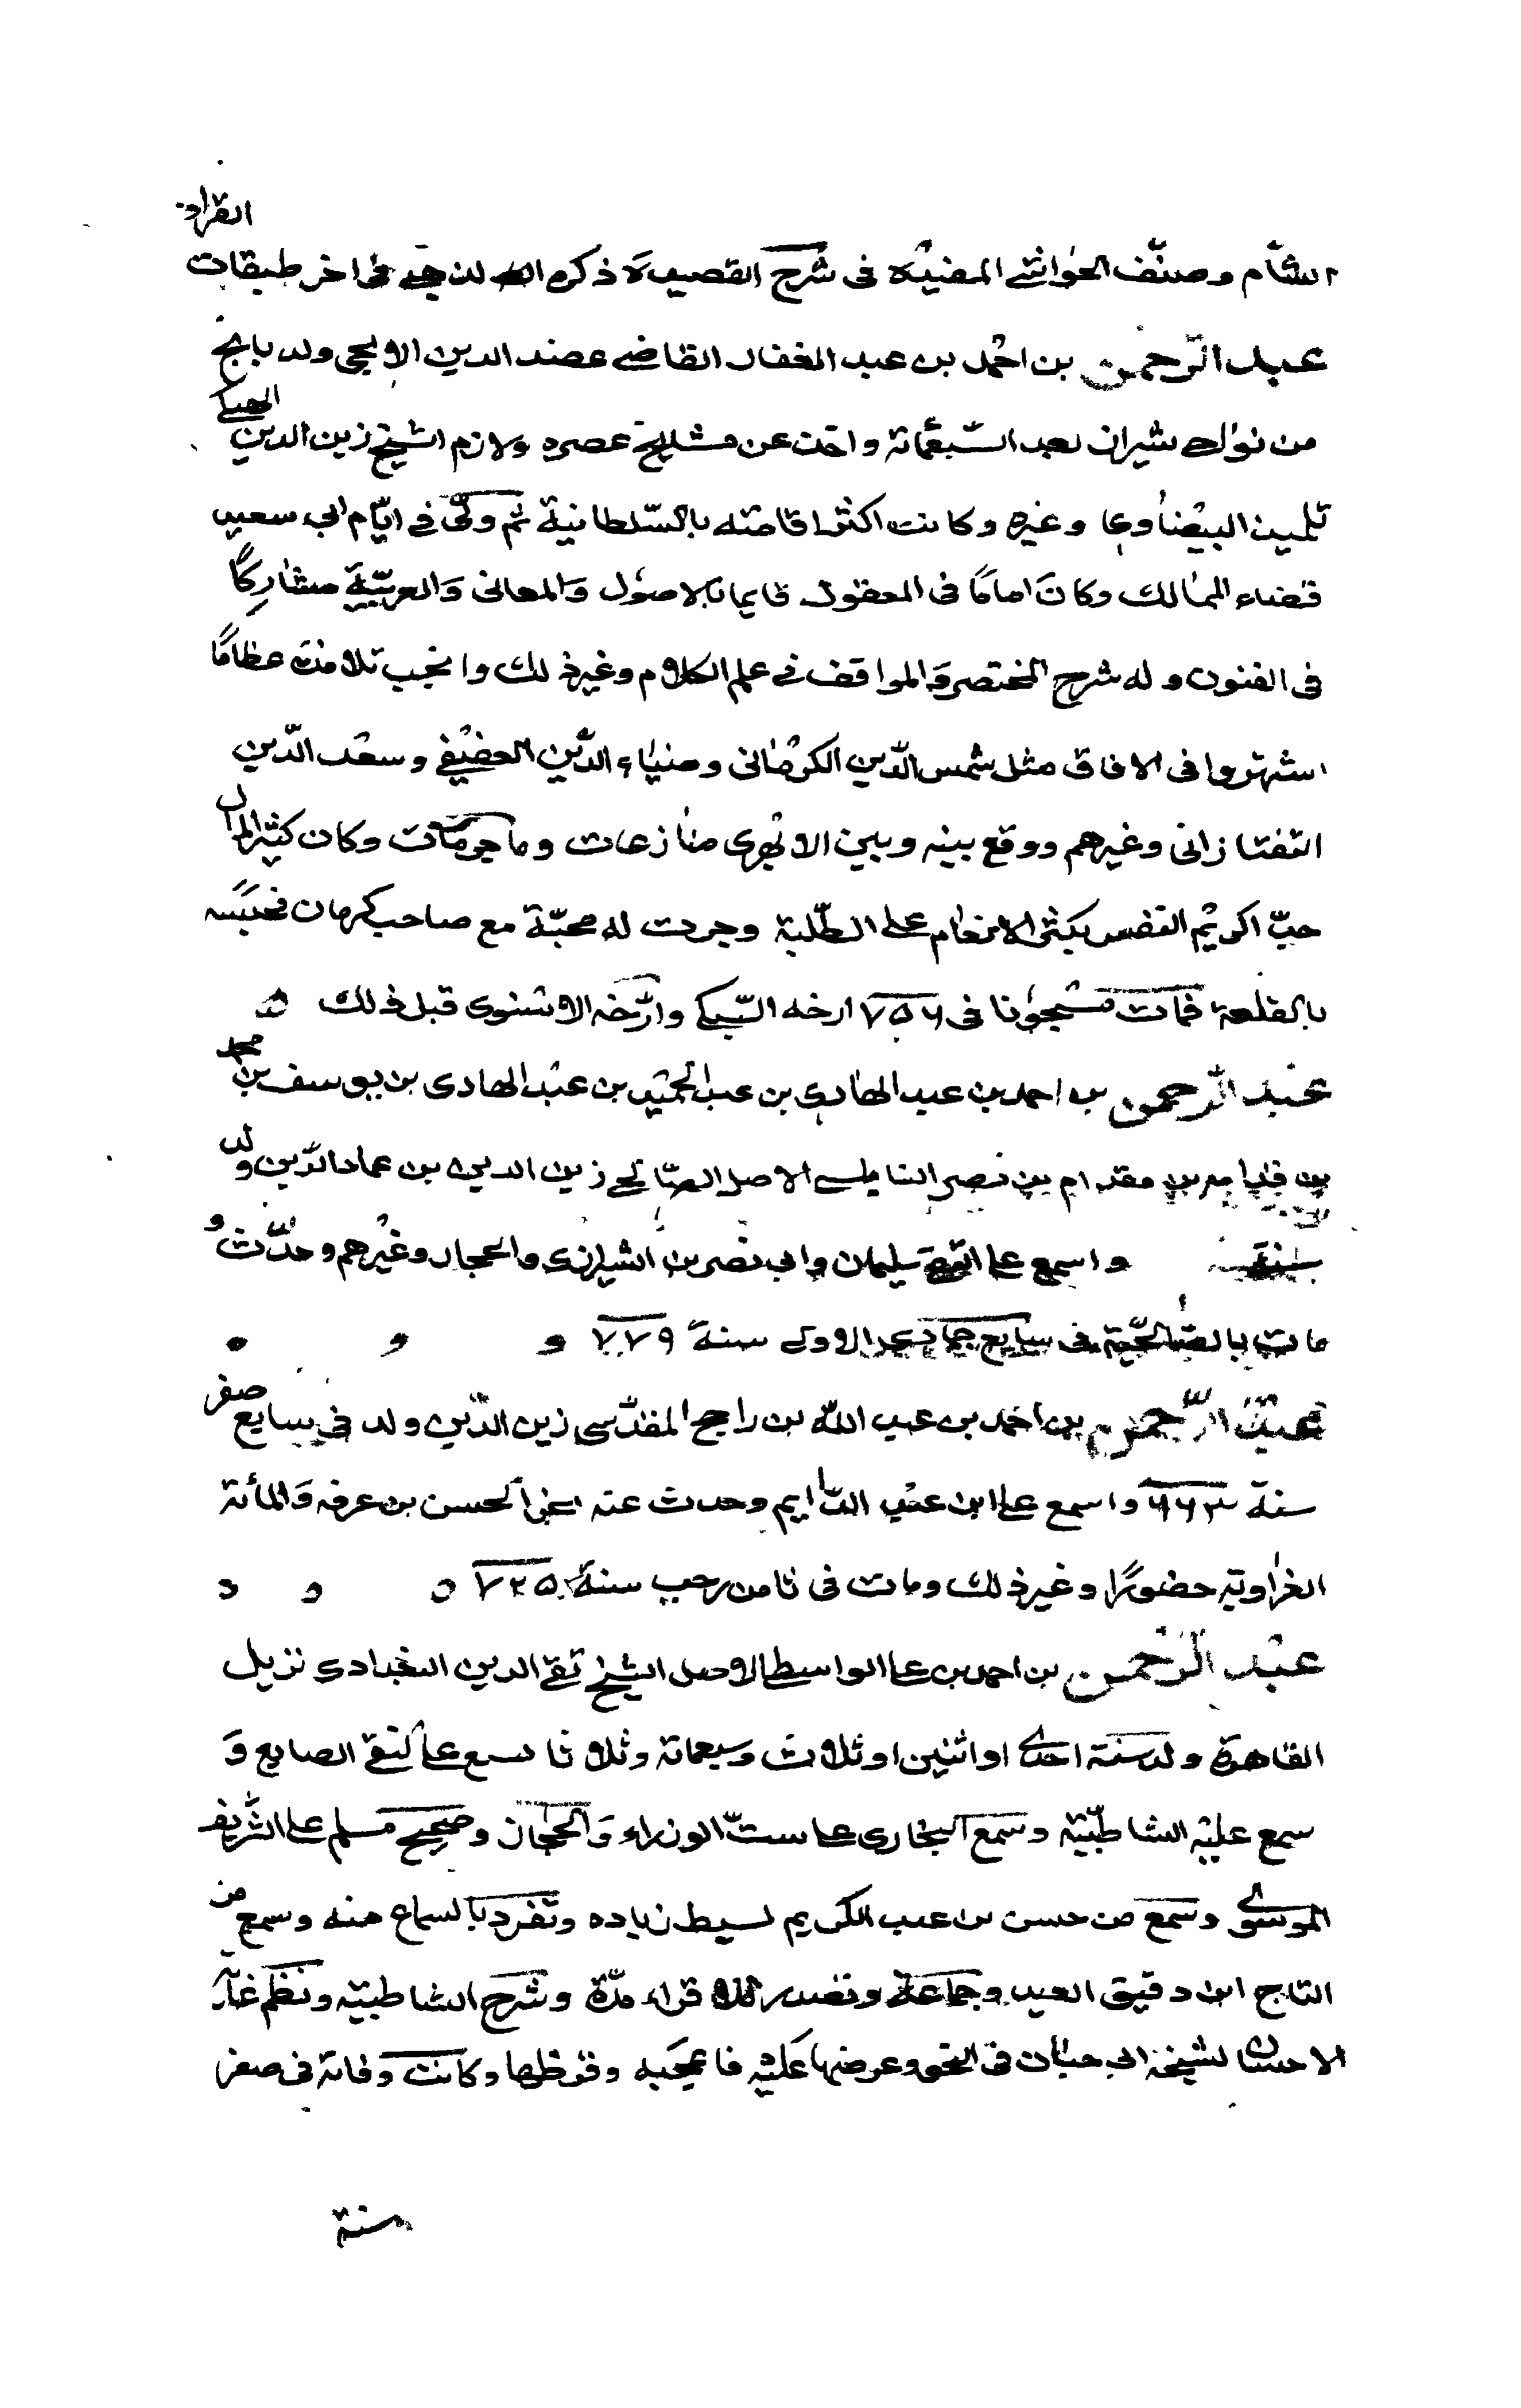 القراء
الشأم وصنّف الحواشي المفيدة في شرح القصيدة ذكره في اخر طبقات
عبد الرحمن بن احمد بن عبد الغفار القاضي عضد الدين الايجي ولد بايج
من نواحي شيراز بعد السبعمائة واخذ عن مشايخ عصره ولازم الشيخ زين الدين الهنكي
تلميذ البيضاوي وغيره وكانت اكثر اقامته بالسّلطانية ثم ولّى في ايّام ابي سعيد
قضاء الممالك وكانَ امامًا في المعقول قايما بالاصول وَالمعاني وَالعربيّةِ مشارِكًا
في الفنون وله شرح المختصر وَالمواقف في علم الكلام وغير ذلك وانجب تلامذة عظامًا
اشتهروا في الافاق مثل شمس الدّين الكرماني وضياء الدّين العفيفي وسعد الدّين
التفتازاني وغيرهم ووقع بينه وبين الابهري منازعات وماجريات وكان كثير المال
جدّا كريم النفس يكثر الانعام على الطّلبة وجرت له محنة مع صاحب كرمان فحبسه
بالقلعة فمات مسجونا في ٧٥٦ ارخه السّبكي وارّخه الاسنوي قبل ذلك ه
عبد الرحمن بن احمد بن عبد الهادي بن عبد الحميد بن عبد الهادي بن يوسف بن محمد
بن قدامه بن مقدام بن نصر النابلسي الاصل الصّالحي زين الدين بن عماد الدّين ولد
سنة واسمع على سليمان وابي نصر بن الشيرازي والحجار وغيرهم وحدّث و
مات بالصّالحيّة في سابع جمادى الاولى سنة ٧٧٩ و و ٥
عبد الرّحمن بن احمد بن عبد الله بن راجح المقدّسي زين الدّين ولد في سابع صفر
سنة ٦٦٣ واسمع على ابن عبد الدّايم وحدث عنه بجزء الحسن بن عرفه وَالمائة
الفراويّه حضورًا وغير ذلك ومات في ثامن رجب سنة ٧٢٥ ٥ و د
عبد الرحمن بن احمد بن علي الواسطي الاصل الشيخ تقي الدين البغدادي نزيل
القاهرة ولد سنة احدى او اثنين او ثلاث وسبعمائة وتلا تا لسبع على التقي الصايغ وَ
سمع عليه الشاطبيّة وسمع البخاري على ستّ الوزراء وَالحجار وصحيح مسلم على الشّريف
الموسوي وسمع من حسن بن عبد الكريم لسيط زياده وتفرد بالسماع منه وسمع من
التاج ابن دقيق العيد وجماعة وتصدر للاقراء مدّة وشرح الشاطبيّه ونظم غاية
الاحسان لشيخه ابي حيان في النحو وعرضها عليه فاعجبه وقرظها وكانت وفاته في صفر
سنة